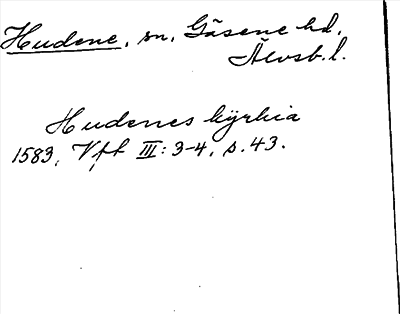 Hudene, sn, Gäsene hd,
Älvsb. l.
Hudenes kyrkia
1583, Vfft III: 3-4, s. 43.